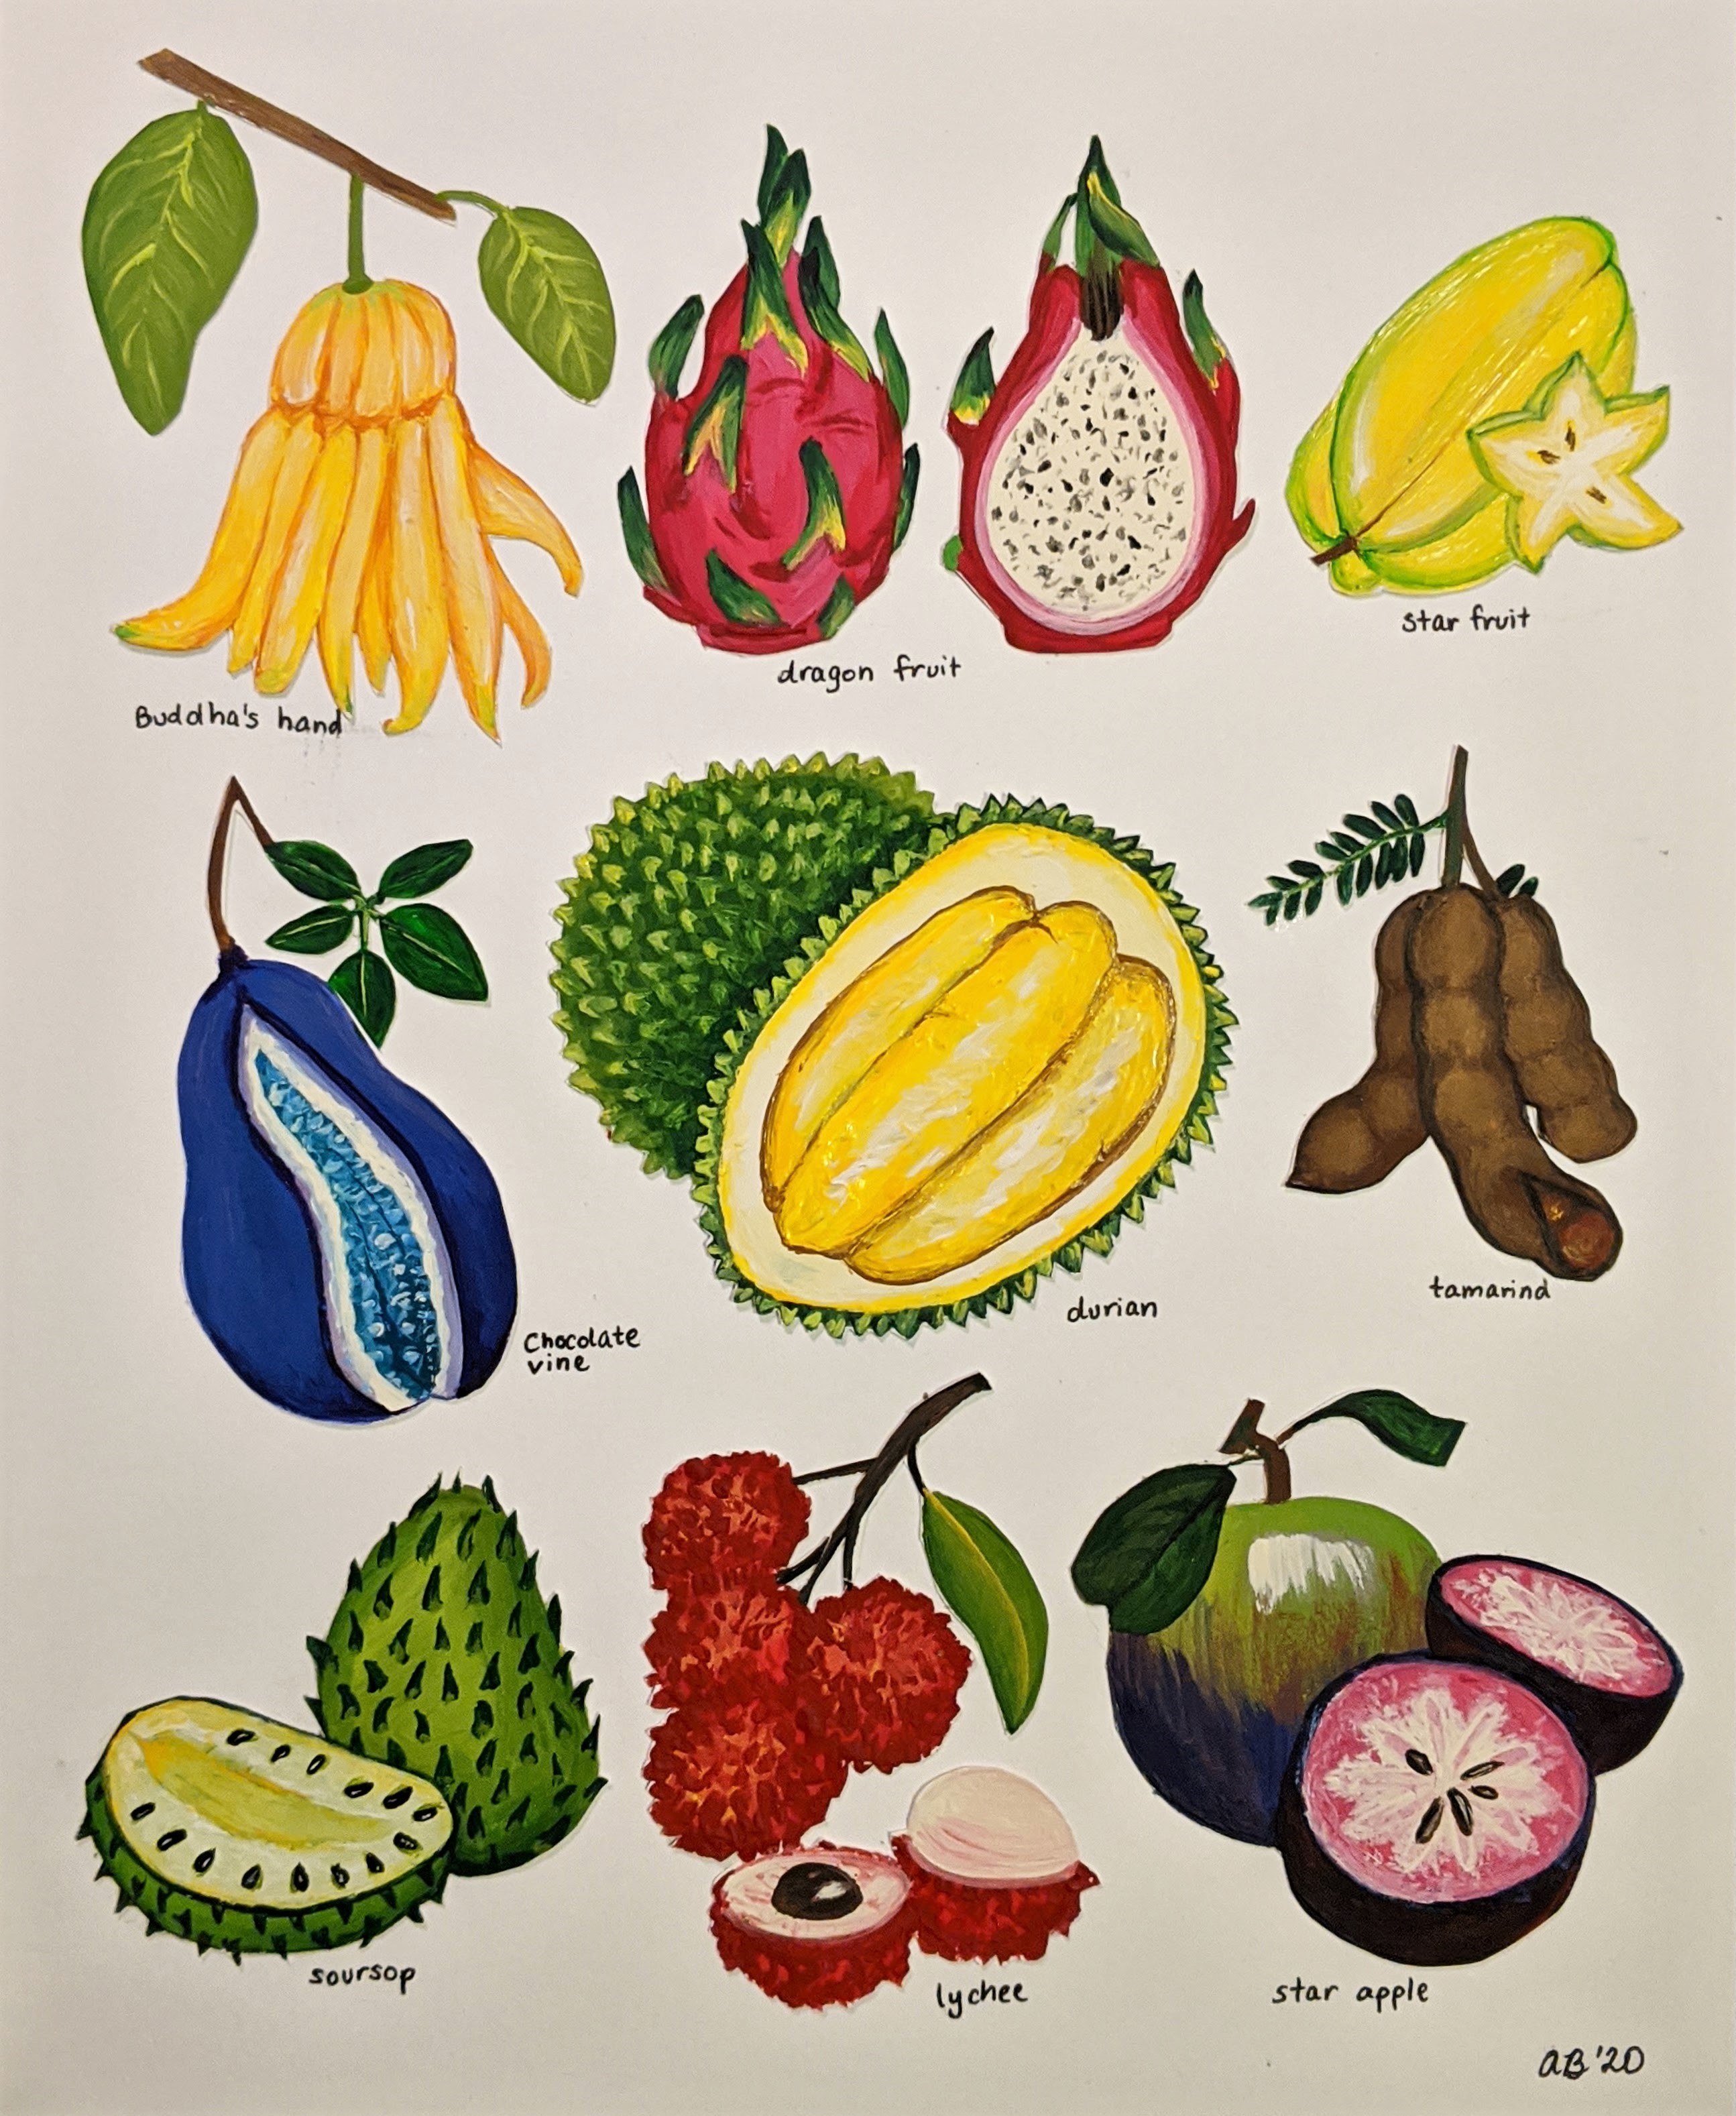 Buddha's hand
dragon fruit
star fruit
Chocolate
vine
durian
tamarind
soursop
lychee
star apple
AB '20